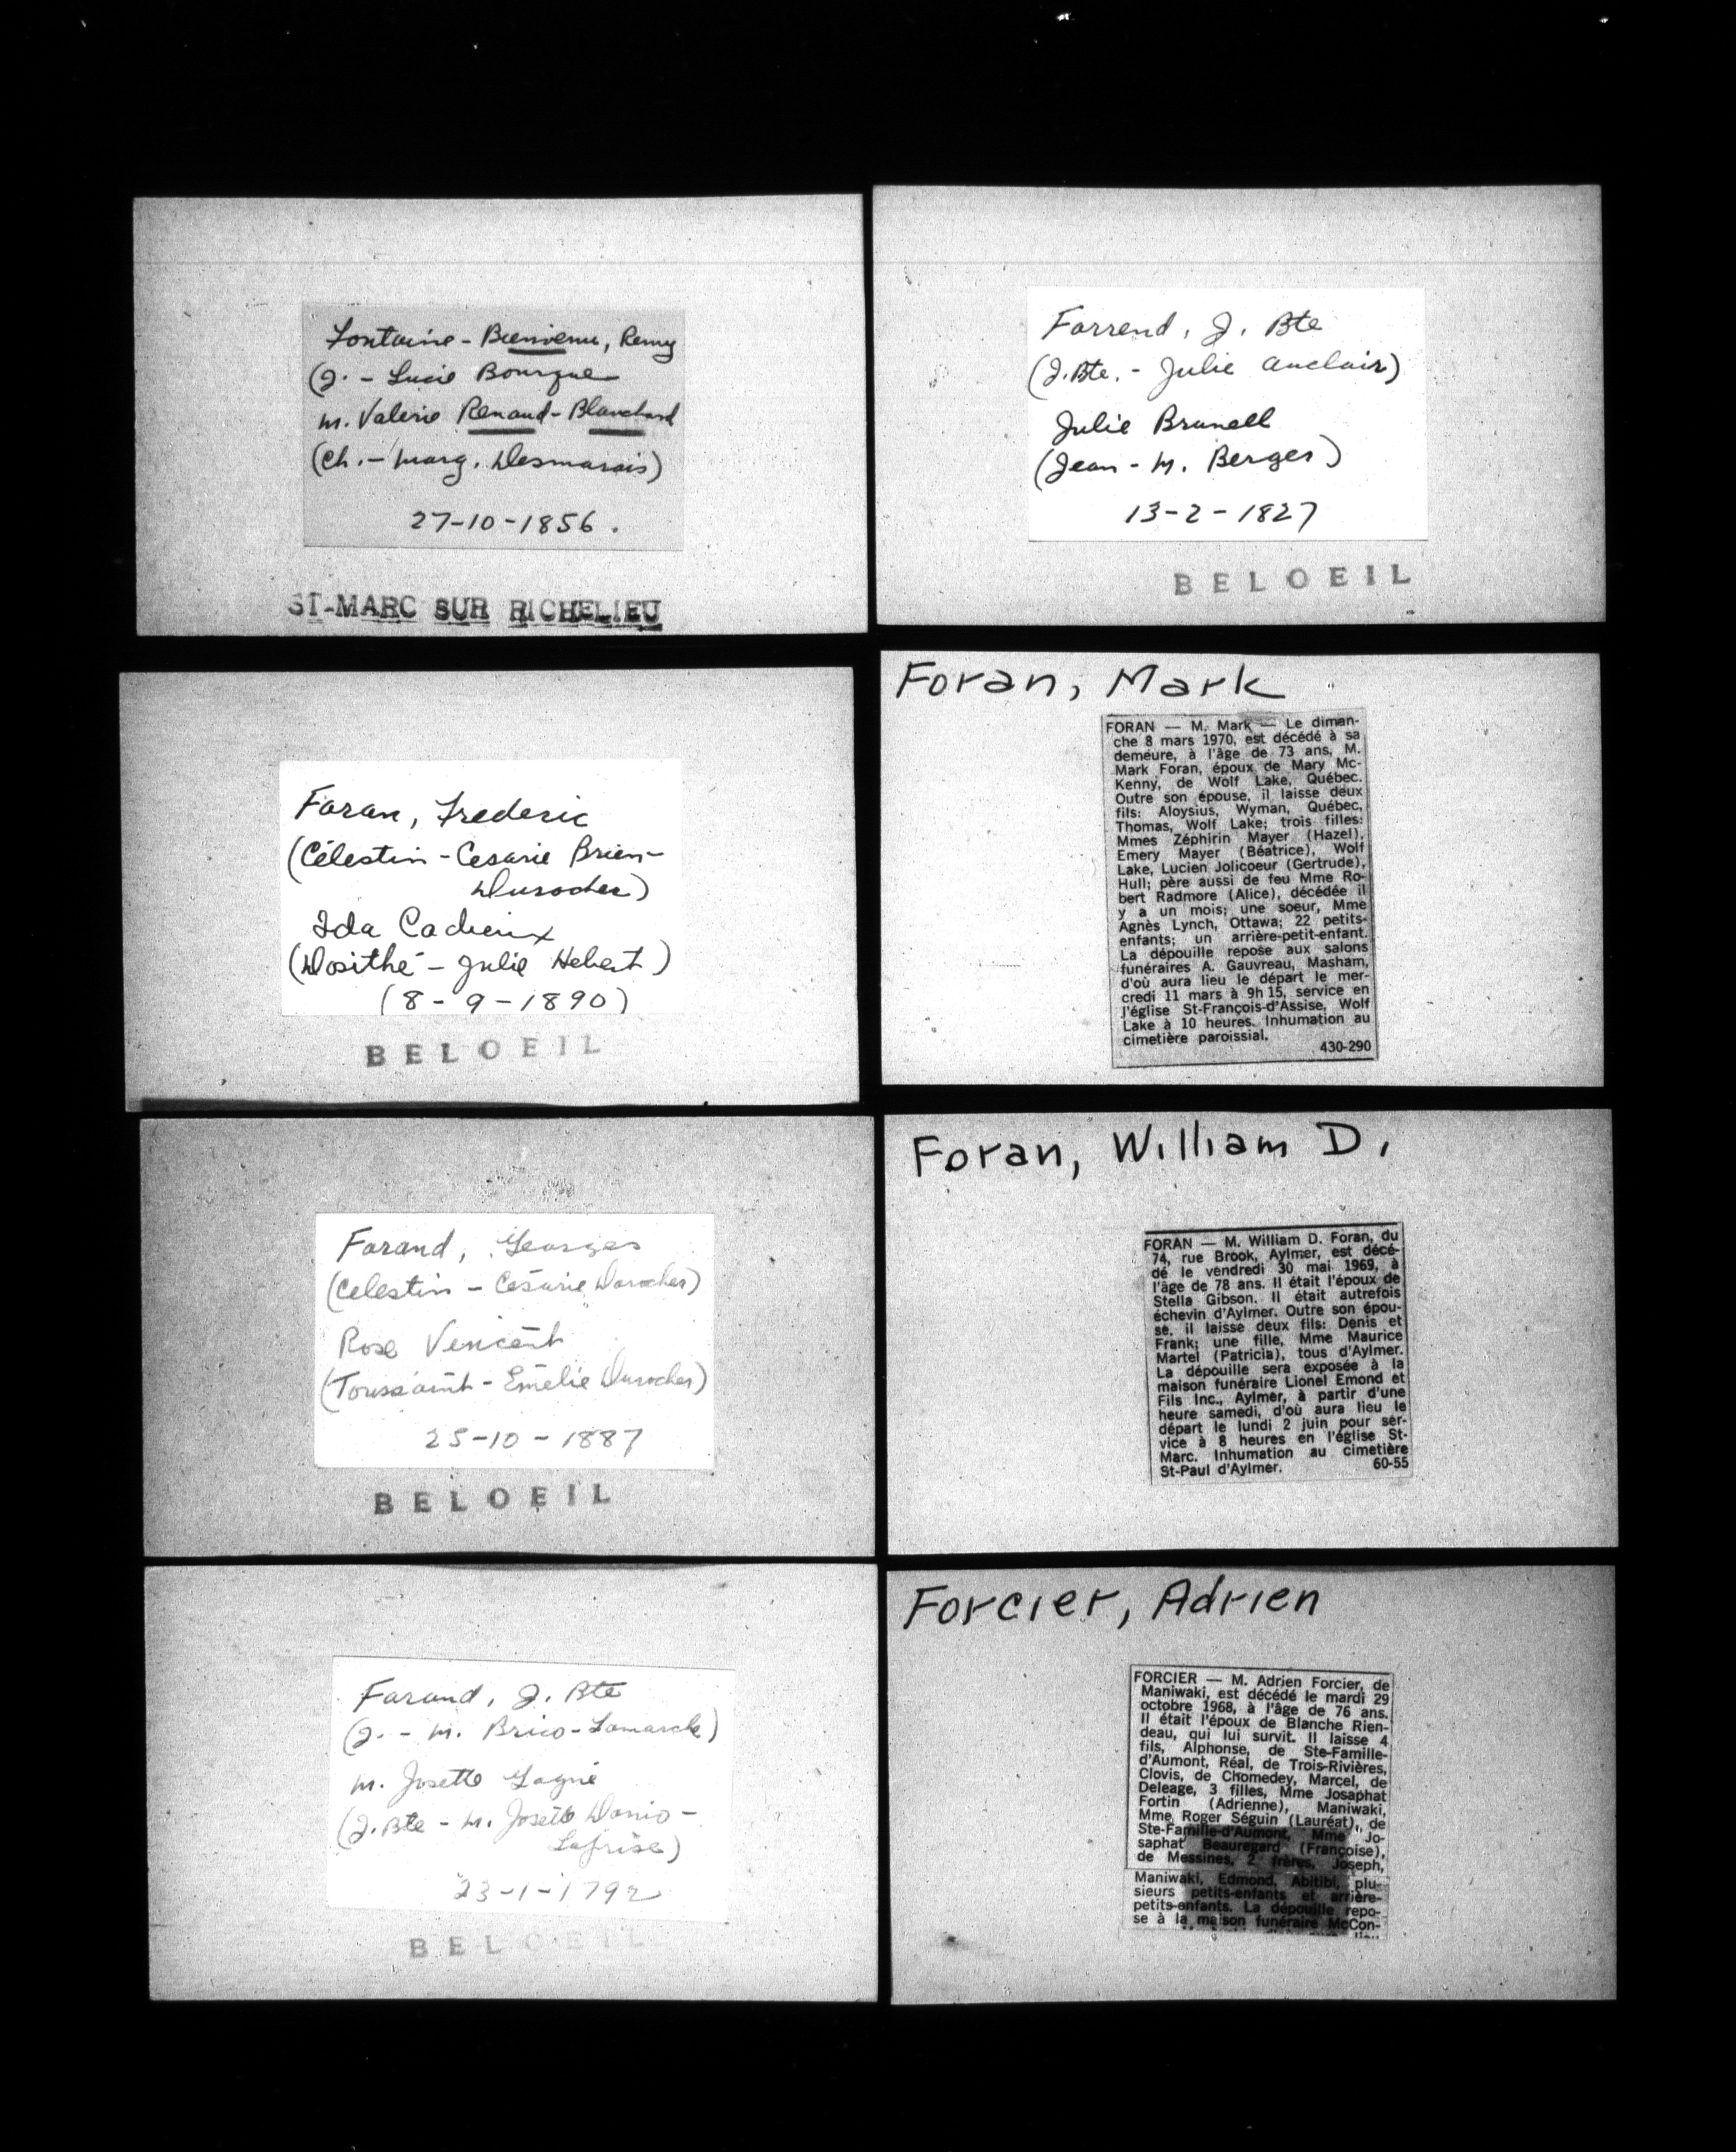 Fontaine - Bienvenu, Remy
(J. - Lucie Bourque
m. Valerie Renaud - Blanchard
(Ch. - Marg. Desmarais)
27-10-1856.
ST-MARC SUR RICHELIEU
Foran, Frederic
(Célestin - Cesarie Brien-
Durocher)
Ida Cadieux
(Dosithé - Julie Hebert)
(8-9-1890)
BELOEIL
Forand, Georges
(Celestin - Césarie Durocher)
Rose Vincent
(Toussaint - Emélie Durocher)
25-10-1887
BELOEIL
Forand, J. Bte
(J. - M. Brico-Lamarche)
m. Josette Gagné
(J. Bte - M. Josette Danio-
Lafrise)
23-1-1792
BELOEIL
Forrend, J. Bte
(J. Bte. - Julie Auclair)
Julie Brunell
(Jean - M. Berger)
13-2-1827
BELOEIL
Foran, Mark
FORAN — M. Mark — Le diman-
che 8 mars 1970, est décédé à sa
demeure, à l'âge de 73 ans, M.
Mark Foran, époux de Mary Mc-
Kenny, de Wolf Lake, Québec.
Outre son épouse, il laisse deux
fils: Aloysius, Wyman, Québec,
Thomas, Wolf Lake; trois filles:
Mmes Zéphirin Mayer (Hazel),
Emery Mayer (Béatrice), Wolf
Lake, Lucien Jolicoeur (Gertrude),
Hull; père aussi de feu Mme Ro-
bert Radmore (Alice), décédée il
y a un mois; une soeur, Mme
Agnès Lynch, Ottawa; 22 petits-
enfants; un arrière-petit-enfant.
La dépouille repose aux salons
funéraires A. Gauvreau, Masham,
d'où aura lieu le départ le mer-
credi 11 mars à 9h 15, service en
l'église St-François-d'Assise, Wolf
Lake à 10 heures. Inhumation au
cimetière paroissial.
430-290
Foran, William D.
FORAN — M. William D. Foran, du
74, rue Brook, Aylmer, est décé-
dé le vendredi 30 mai 1969, à
l'âge de 78 ans. Il était l'époux de
Stella Gibson. Il était autrefois
échevin d'Aylmer. Outre son épou-
se, il laisse deux fils: Denis et
Frank; une fille, Mme Maurice
Martel (Patricia), tous d'Aylmer.
La dépouille sera exposée à la
maison funéraire Lionel Emond et
Fils Inc., Aylmer, à partir d'une
heure samedi, d'où aura lieu le
départ le lundi 2 juin pour ser-
vice à 8 heures en l'église St-
Marc. Inhumation au cimetière
St-Paul d'Aylmer. 60-55
Forcier, Adrien
FORCIER — M. Adrien Forcier, de
Maniwaki, est décédé le mardi 29
octobre 1968, à l'âge de 76 ans.
Il était l'époux de Blanche Rien-
deau, qui lui survit. Il laisse 4
fils, Alphonse, de Ste-Famille-
d'Aumont, Réal, de Trois-Rivières,
Clovis, de Chomedey, Marcel, de
Deleage, 3 filles, Mme Josaphat
Fortin (Adrienne), Maniwaki,
Mme Roger Séguin (Lauréat), de
Ste-Famille-d'Aumont, Mme Jo-
saphat Beauregard (Françoise),
de Messines, 2 frères, Joseph,
Maniwaki, Edmond, Abitibi, plu-
sieurs petits-enfants et arrière-
petits-enfants. La dépouille repo-
se à la maison funéraire McCon-